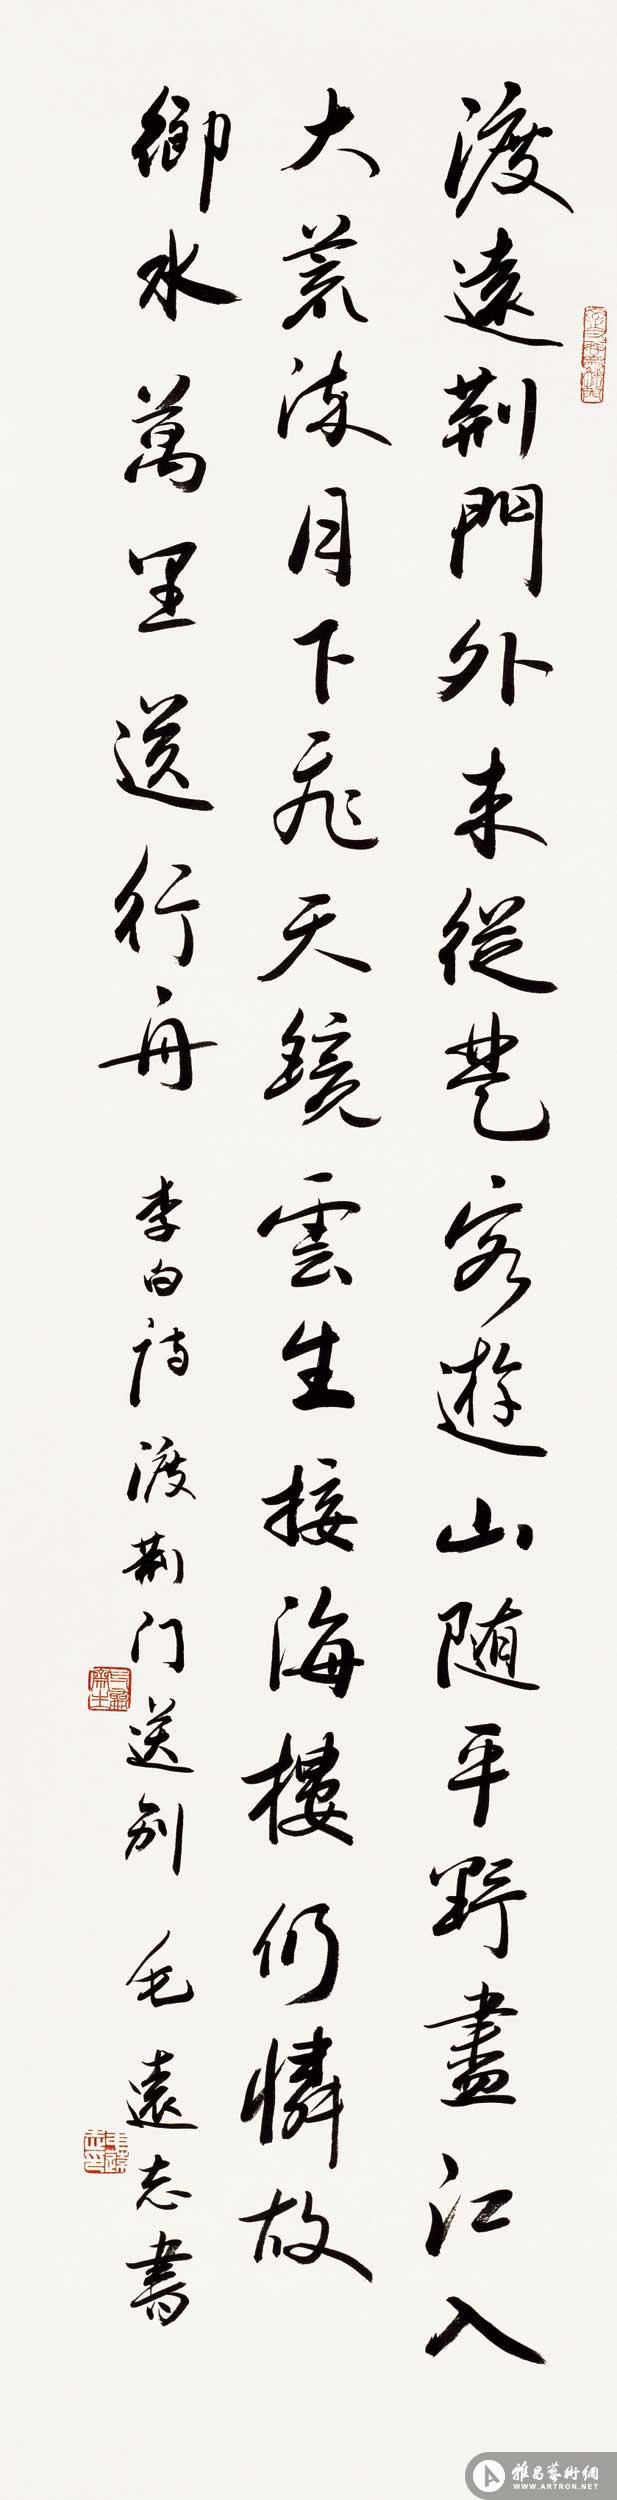 渡遠荊門外来從楚客遊山隨平野盡江入
大荒流月下飛天鏡雲生接海樓仍憐故
鄉水萬里送行舟 李白诗渡荊门送别 毛遠志書
雅昌藝術網
WWW.ARTRON.NET